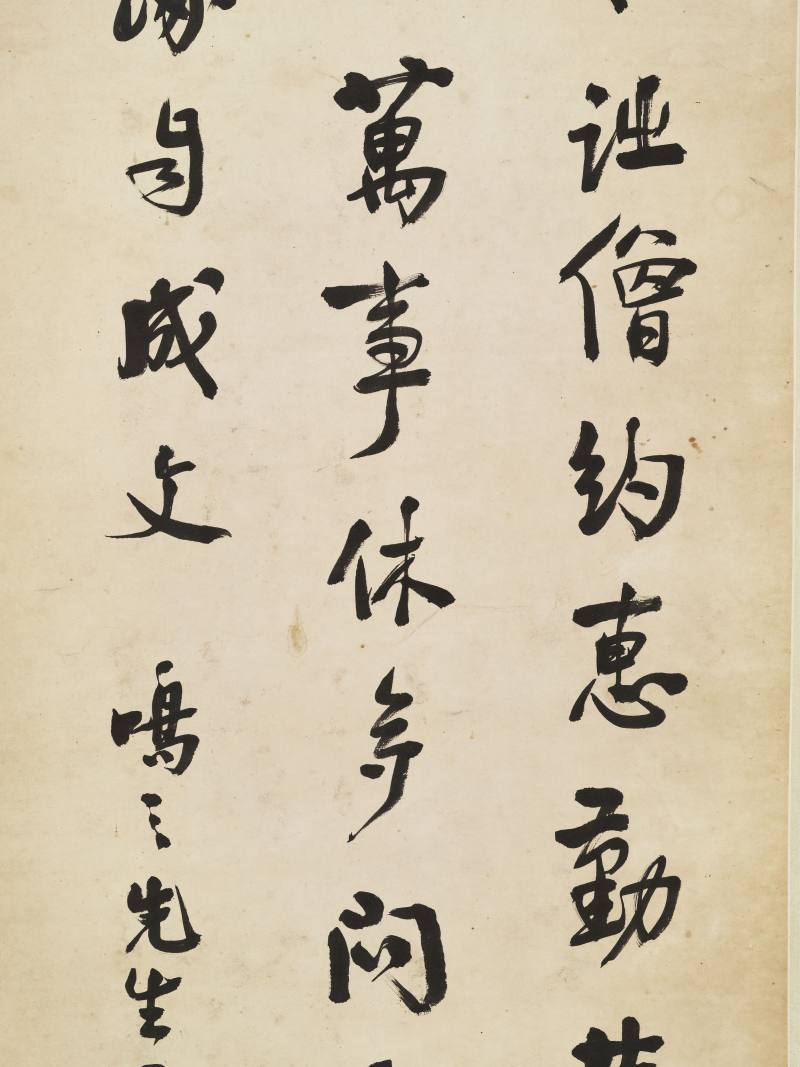 僧約惠勤
萬事休多問
自成文 鳴三先生